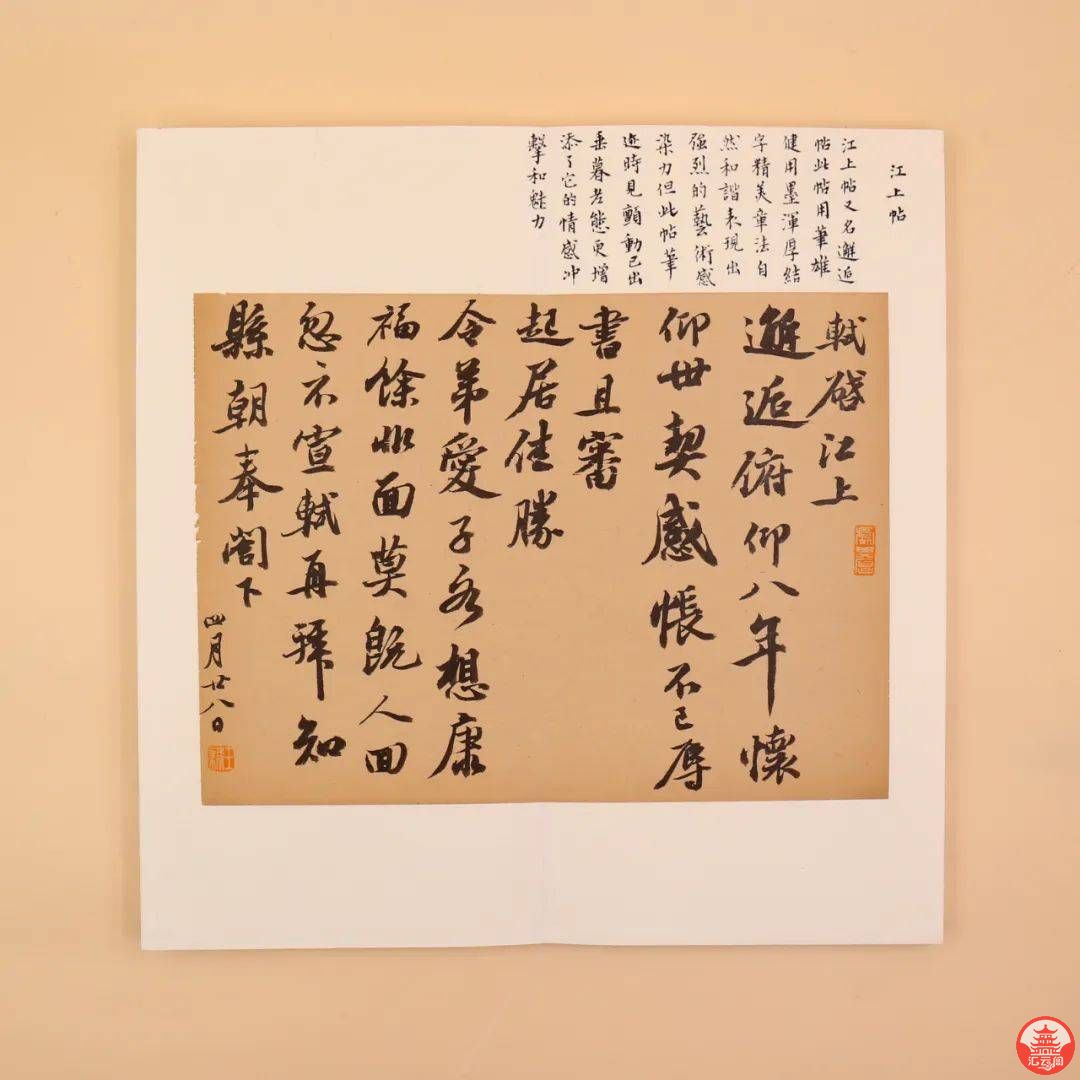 江上帖
江上帖又名邂逅
帖此帖用筆雄
健用墨渾厚結
字精美章法自
然和諧表現出
强烈的藝術感
染力但此帖筆
迹時見顫動已出
垂暮老態更增
添了它的情感冲
擊和魅力
軾啓江上
邂逅俯仰八年懷
仰世契感悵不已辱
書且審
起居佳勝
令弟愛子各想康
福餘非面莫既人回
怱不宣軾再拜知
縣朝奉閣下
四月廿八日
汇云阁